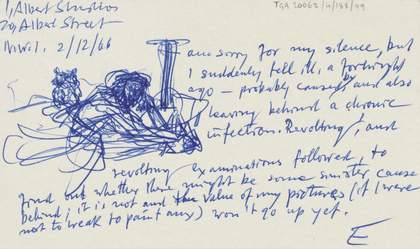 TGA 20062/4/188/49
1, Albert Studios
20, Albert Street
N.W.1. 2/12/66
am sorry for my silence, but
I suddenly fell ill, a fortnight
ago – probably caused by and also
leaving behind a chronic
infection. Revolting, and
revolting examinations followed, to
find out whether there might be some sinister cause
behind; it is not and the value of my pictures (if I were
not to break to paint any) won't go up yet.
E